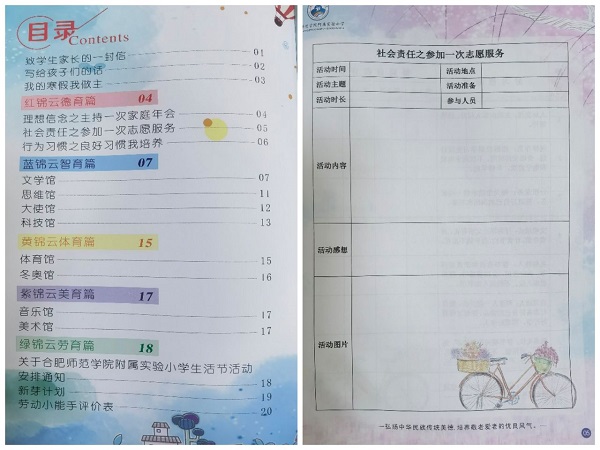 目录
Contents
致学生家长的一封信 01
写给孩子们的话 02
我的寒假我做主 03
红锦云德育篇 04
理想信念之主持一次家庭年会 04
社会责任之参加一次志愿服务 05
行为习惯之良好习惯我培养 06
蓝锦云智育篇 07
文学馆 07
思维馆 11
大使馆 12
科技馆 13
黄锦云体育篇 15
体育馆 15
冬奥馆 16
紫锦云美育篇 17
音乐馆 17
美术馆 17
绿锦云劳育篇 18
关于合肥师范学院附属实验小学生活节活动
安排通知 18
新芽计划 19
劳动小能手评价表 20
社会责任之参加一次志愿服务
活动时间 活动地点
活动主题 活动准备
活动时长 参与人员
活动内容
活动感想
活动图片
一弘扬中华民族传统美德，培养敬老爱老的优良风气。
05